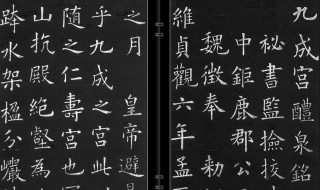 九成宮醴泉銘
秘書監撿挍
中鉅鹿郡公
魏徵奉 勑
維貞觀六年孟
之月 皇帝避
乎九成之宮此
隨之仁壽宮也
山抗殿絕壑為
跨水架楹分巖